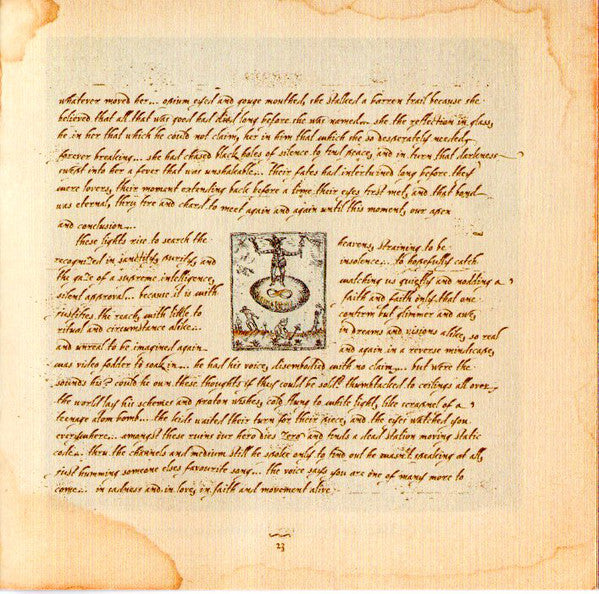 whatever moved her... opium eyed and gouge mouthed, she stalked a barren trail because she
believed that all that was good had died long before she was named... she the reflection in glass,
he in her that which he could not claim, her in him that which she so desperately needed,
forever breaking... she had chased black holes of silence to find peace, and in turn that darkness
swept into her a fever that was unshakable... their fates had intertwined long before they
were lovers, their moment extending back before a time their eyes first met, and that bond
was eternal, they tire and char to meet again and again until this moment, our open
and conclusion...
these lights rise to search the heavens, straining to be
recognized in sanctity, purity, and insolence... to hopefully catch
the gaze of a supreme intelligence, watching us quietly and nodding a
silent approval... because it is with faith and faith only that one
justifies the reach, with little to confirm but glimmer and awe,
ritual and circumstance alike... in dreams and visions alike, so real
and unreal to be imagined again and again in a reverse mindscape
was video fodder to soak in... he had his voice, disembodied with no claim... but were the
sounds his? could he own these thoughts if they could be sold? thumbtacked to ceilings all over
the world lay his schemes and proton wishes, cold flung to white light, like scrapnel of a
teenage atom bomb... the kids waited their turn for their piece, and the eyes watched you
everywhere... amongst these ruins our hero dies Zero and finds a dead station moving static
code... thru the channels and medium still he spoke only to find out he wasn't speaking at all,
just humming someone elses favourite song... the voice says you are one of many more to
come... in sadness and in love, in faith and movement alive
23